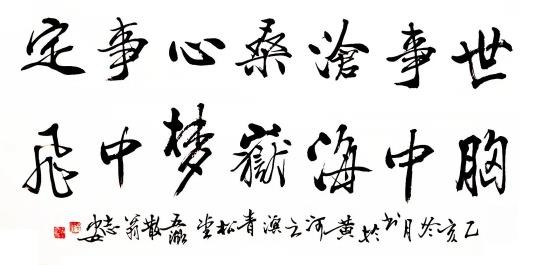 世事滄桑心事定
胸中海嶽夢中飛
乙亥冬月書於黃河之濱青松堂磊散翁志安